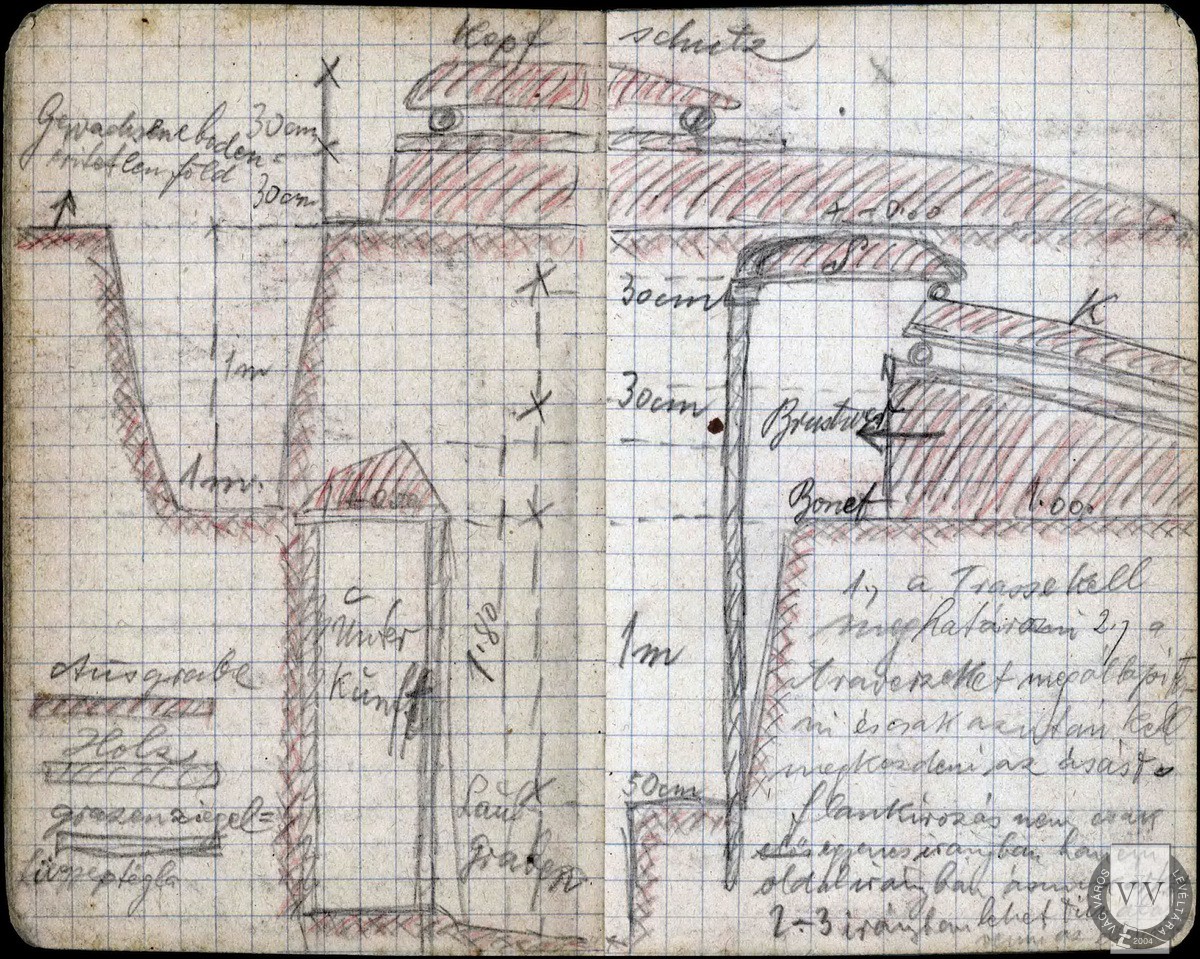 Kopf schutz
Gewachseneboden=
föld
30cm
30cm
1m
1m.
Unter
Kunft
1.80
Ausgrabe
Holz
grasenziegel=
Lauf
Graben
S
30cm
K
30cm
Brustwer
Bonet
1.00.
1m
50cm
1., a Trasse kell
meghatározni 2., a
traverzeket megállapít-
ni és csak azután kell
megkezdeni az ásást.
flankirozás nem csak
irányban hanem
oldal irányban
2-3 irányban lehet
VÁC VÁROS LEVÉLTÁRA
VV
2004